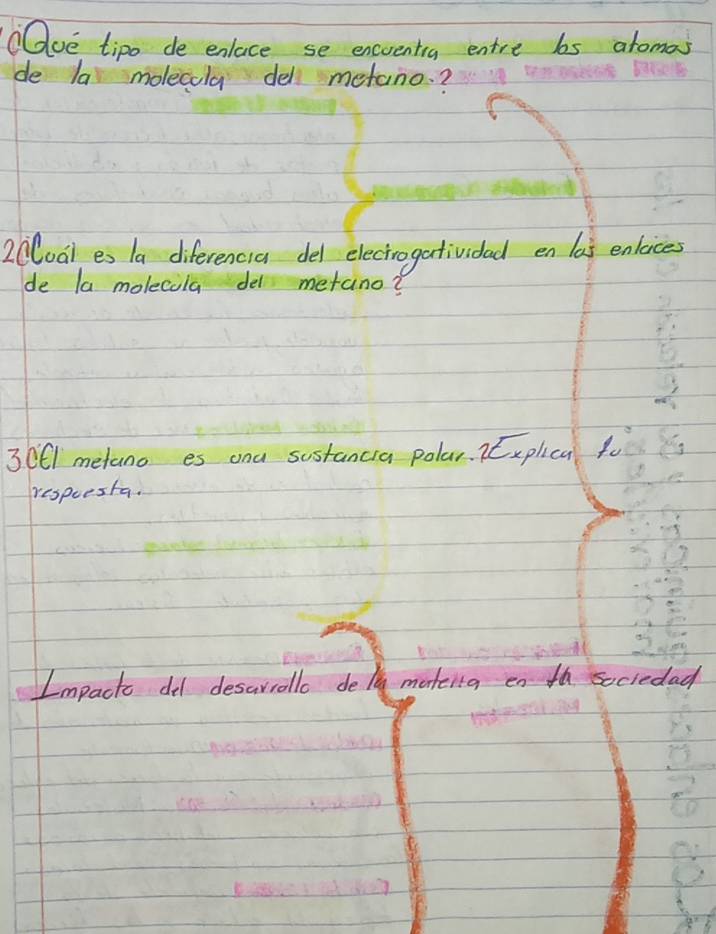 1¿Qué tipo de enlace se encuentra entre los atomos
de la molecula del metano.?
2¿Cuál es la diferencia del electrogatividad en las enlaces
de la molecula del metano?
3.¿El metano es una sustancia polar.?Explica tu
respuesta.
Impacto del desarrollo de la materia en la sociedad